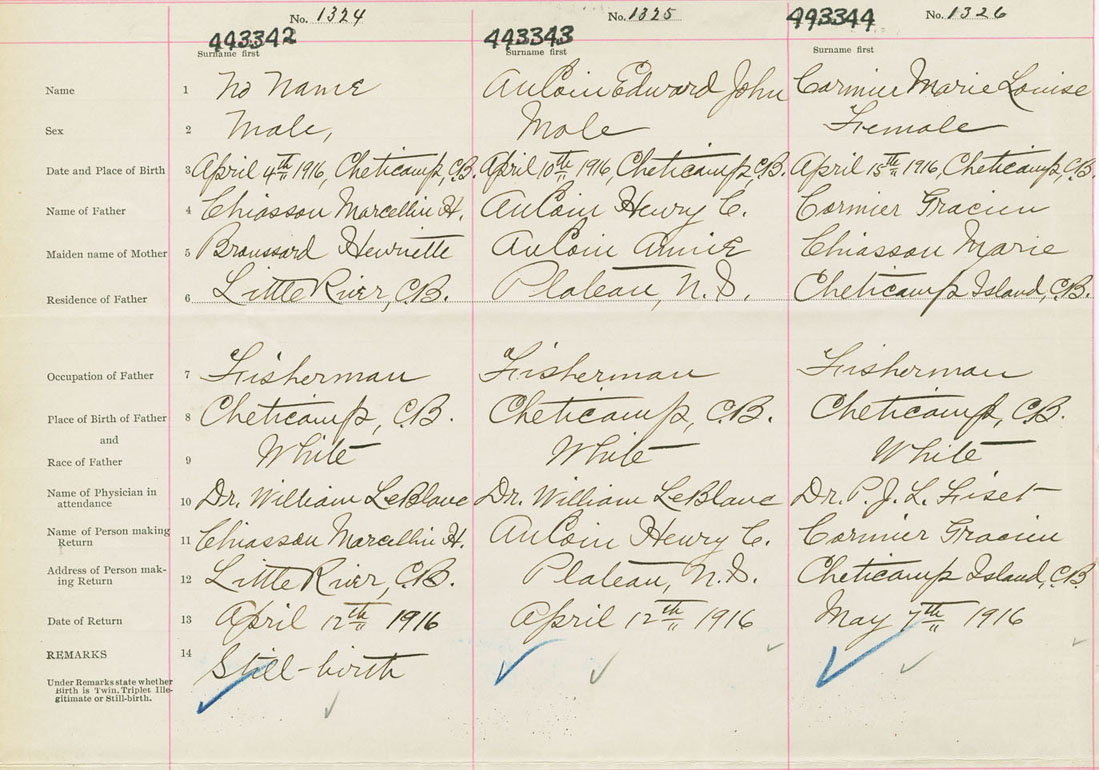 No. 1324 No. 1325 No. 1326
493342 493343 493344
Surname first Surname first Surname first
Name 1 No Name AuCoin Edward John Cormier Marie Louise
Sex 2 Male, Male Female
Date and Place of Birth 3 April 4th 1916, Cheticamp, C.B. April 10th 1916, Cheticamp, C.B. April 15th 1916, Cheticamp, C.B.
Name of Father 4 Chiasson Marcellin H. AuCoin Henry C. Cormier Gracien
Maiden name of Mother 5 Broussard Henriette AuCoin Annie Chiasson Marie
Residence of Father 6 Little River, C.B. Plateau, N.S. Cheticamp Island, C.B.
Occupation of Father 7 Fisherman Fisherman Fisherman
Place of Birth of Father 8 Cheticamp, C.B. Cheticamp, C.B. Cheticamp, C.B.
and
Race of Father 9 White White White
Name of Physician in
attendance 10 Dr. William LeBlanc Dr. William LeBlanc Dr. P.J.L. Fiset
Name of Person making
Return 11 Chiasson Marcellin H. AuCoin Henry C. Cormier Gracien
Address of Person mak-
ing Return 12 Little River, C.B. Plateau, N.S. Cheticamp Island, C.B.
Date of Return 13 April 12th 1916 April 12th 1916 May 7th 1916
REMARKS 14 Still-birth
Under Remarks state whether
Birth is Twin, Triplet Ille-
gitimate or Still-birth.